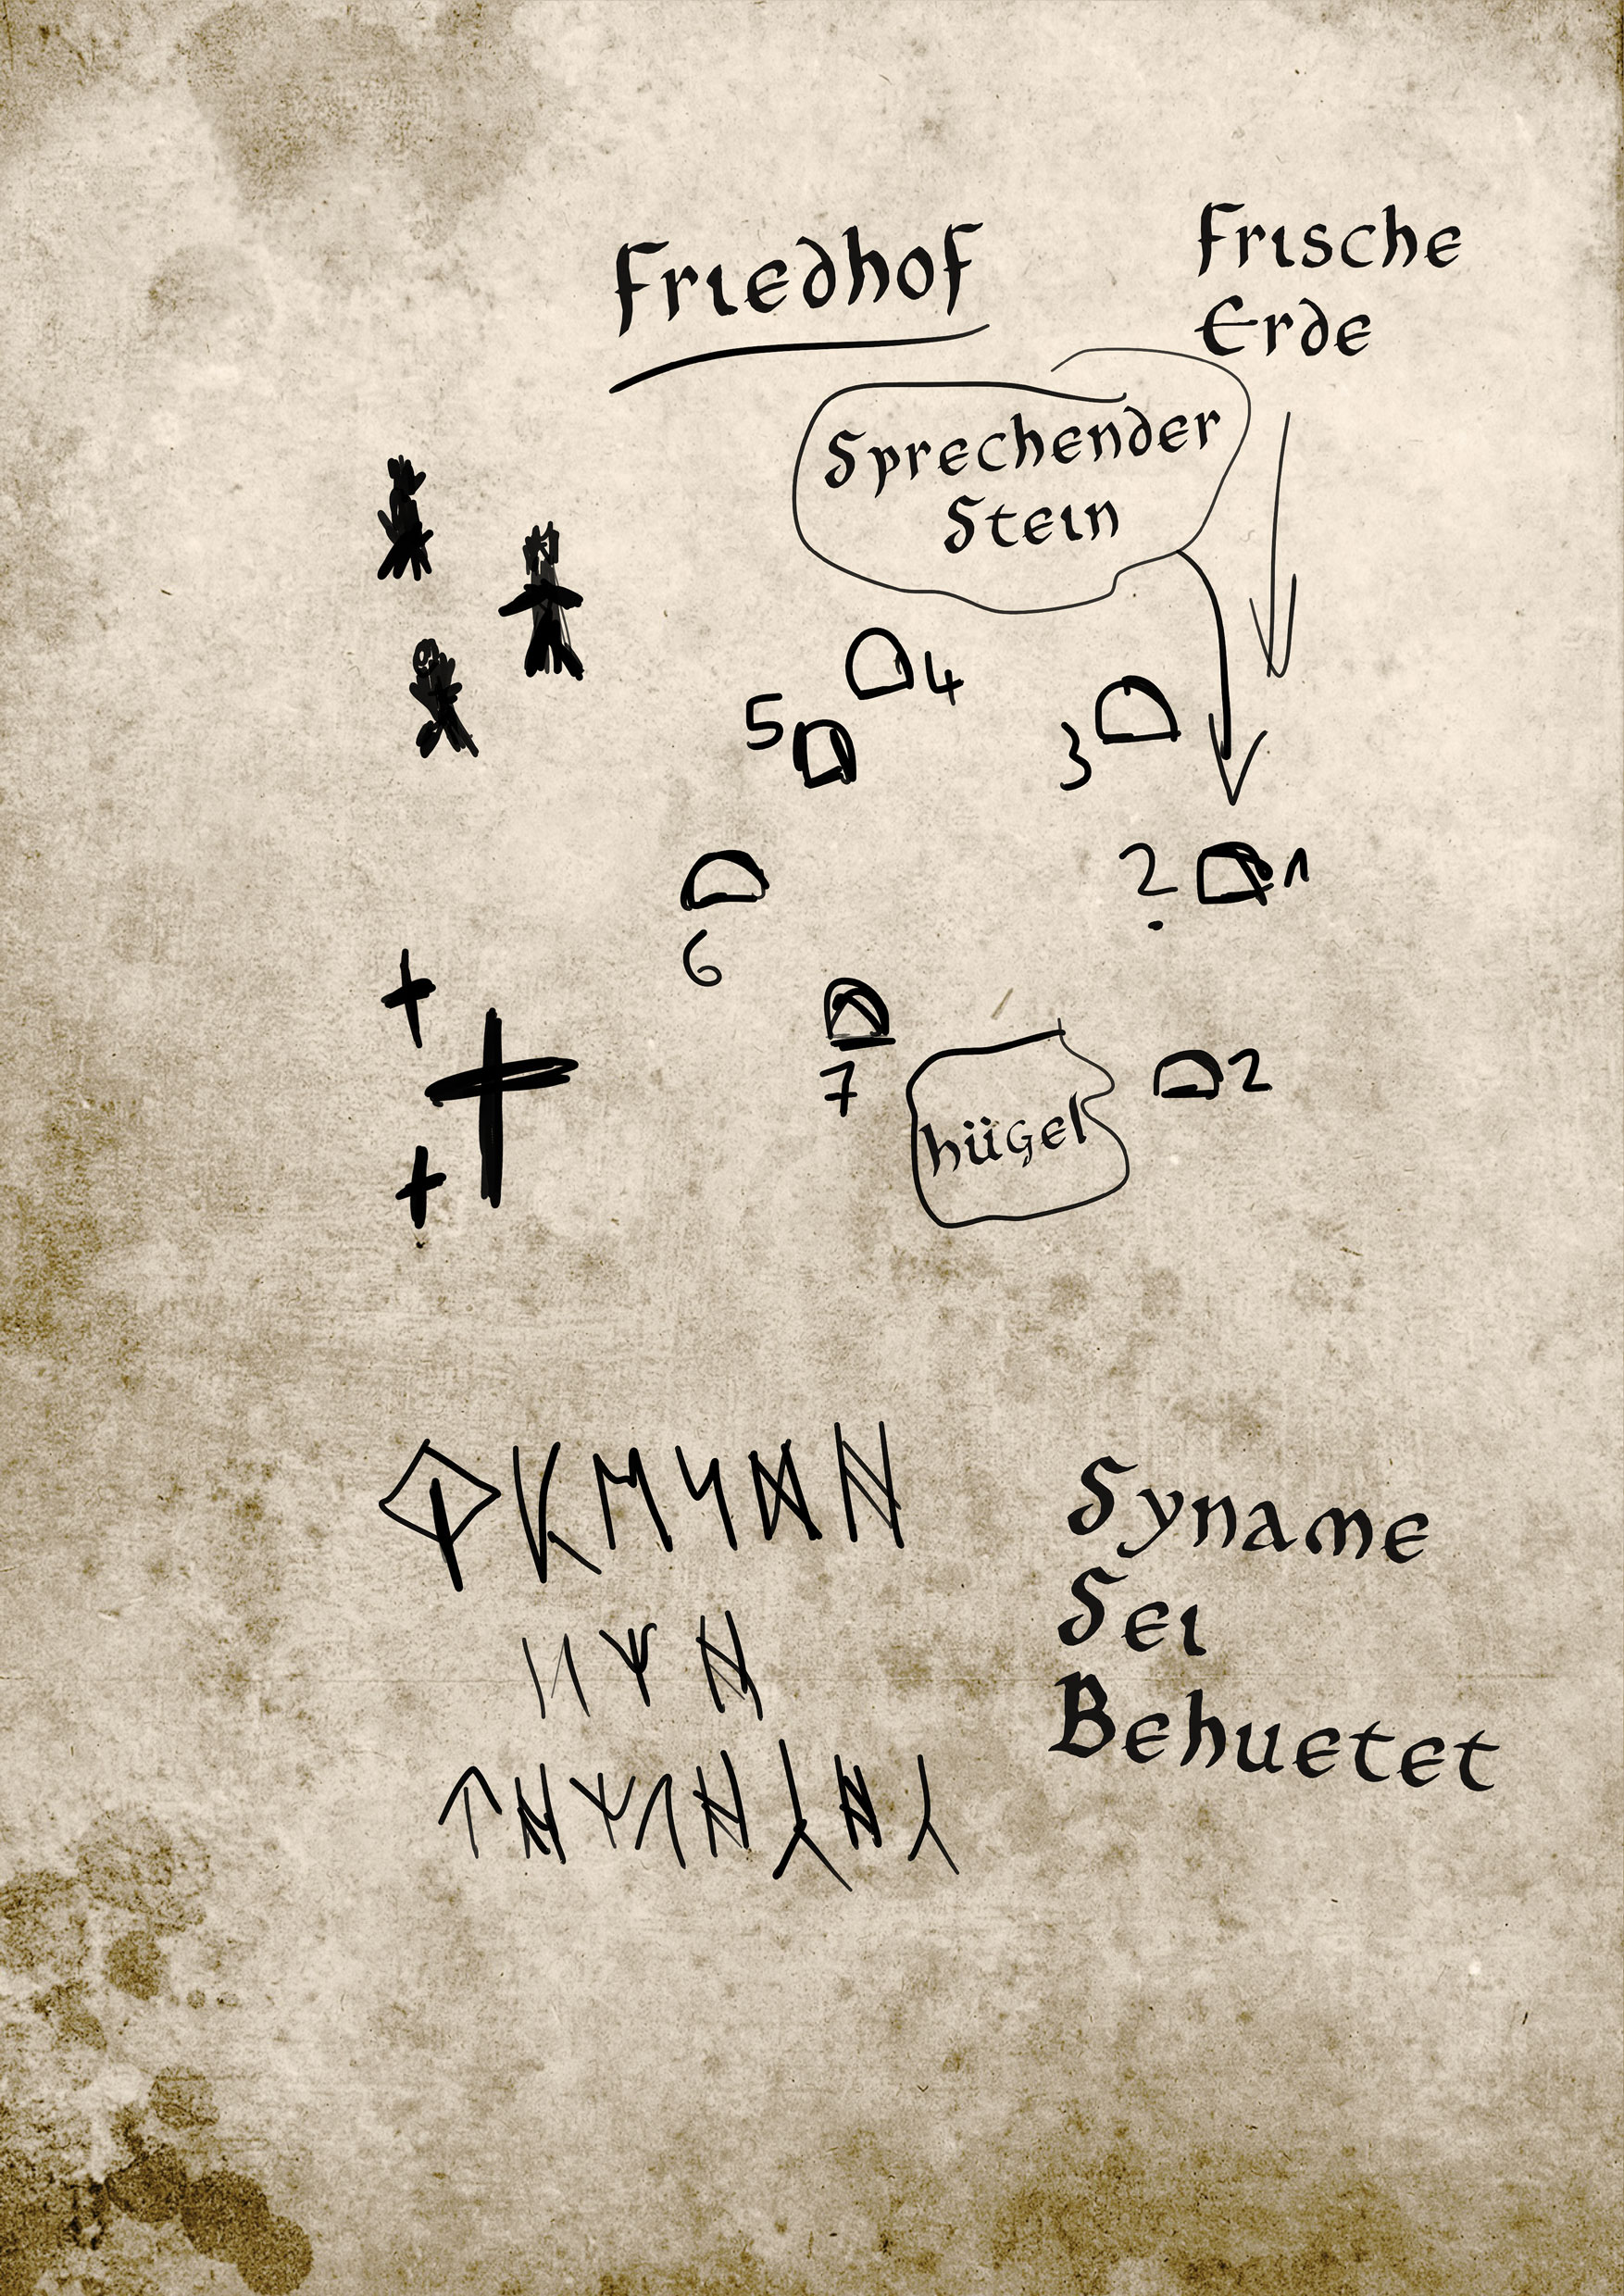 Friedhof
Frische
Erde
Sprechender
Stein
4
5
3
2
1
6
7
hügel
2
Syname
Sei
Behuetet